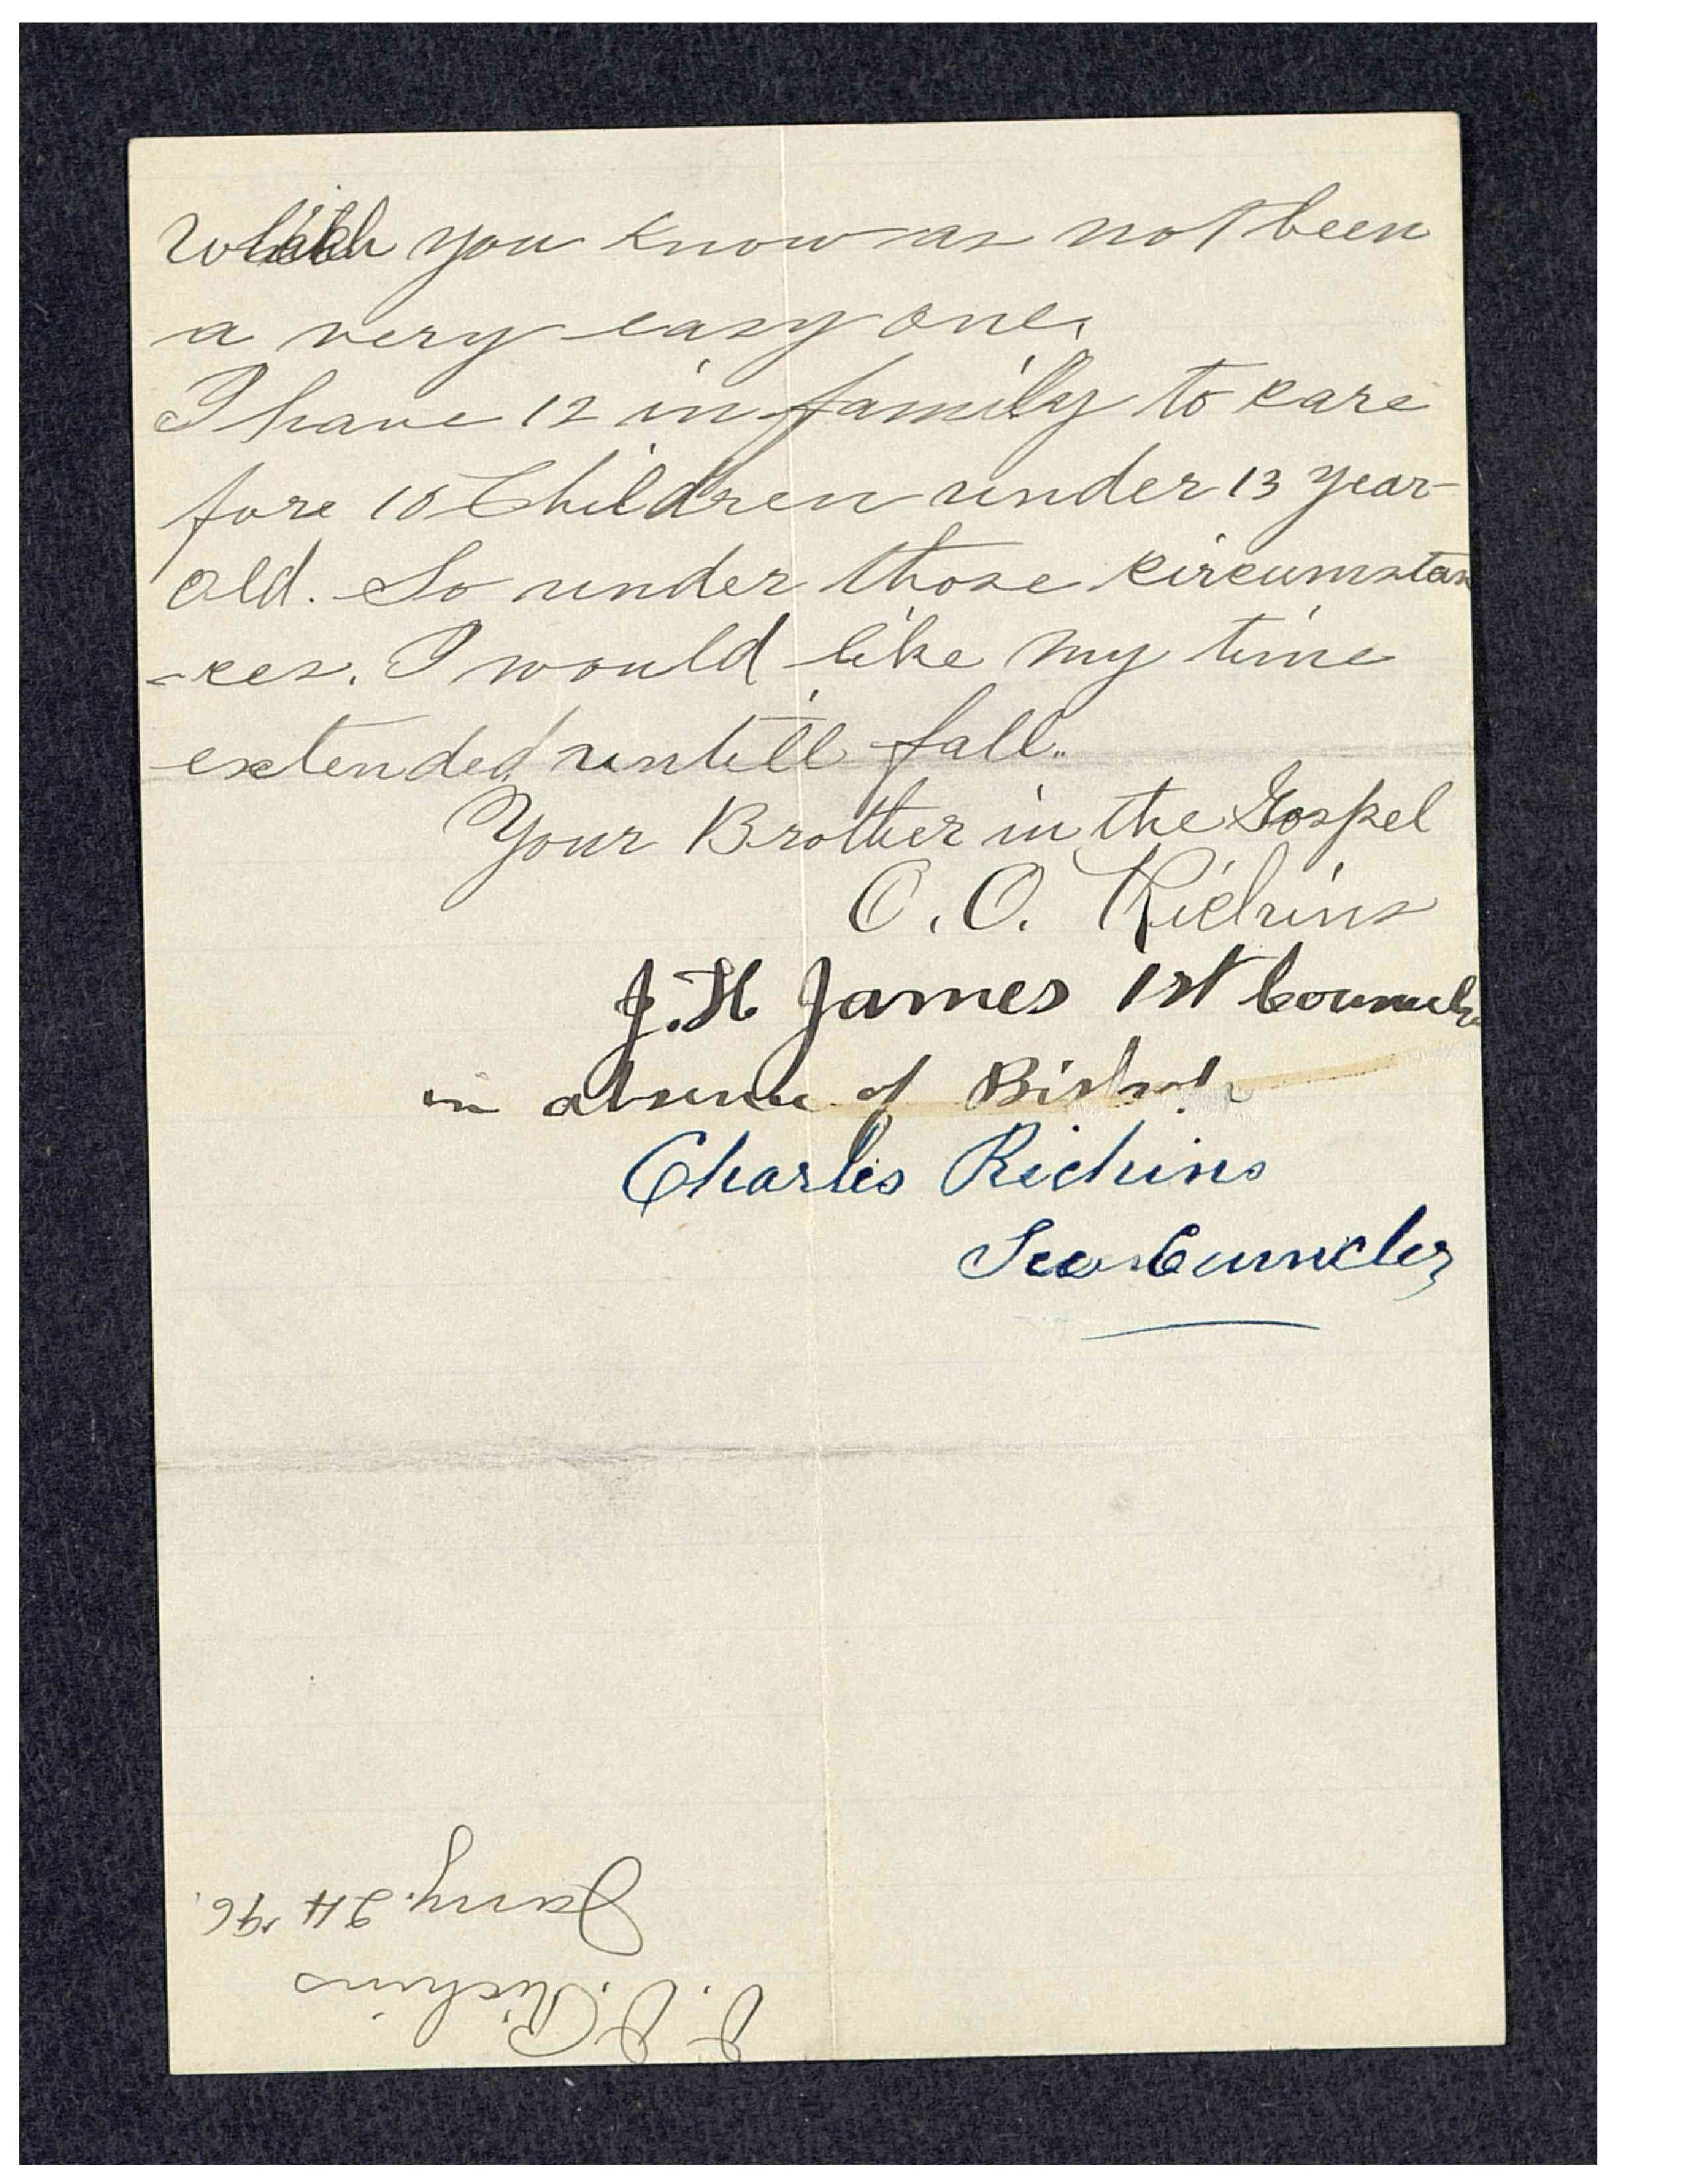 Which you know as not been
a very easy one.
I have 12 in family to kare
fore 10 Children under 13 year
old. So under those kircumstan
-kes. I would like my time
extended untill fall.
Your Brother in the Gospel
O. O. Richins
J. H. James 1st Counseler
in absence of Bishop
Charles Richins
Sec Cuncler
O. O. Richins
Jany. 24 '96.